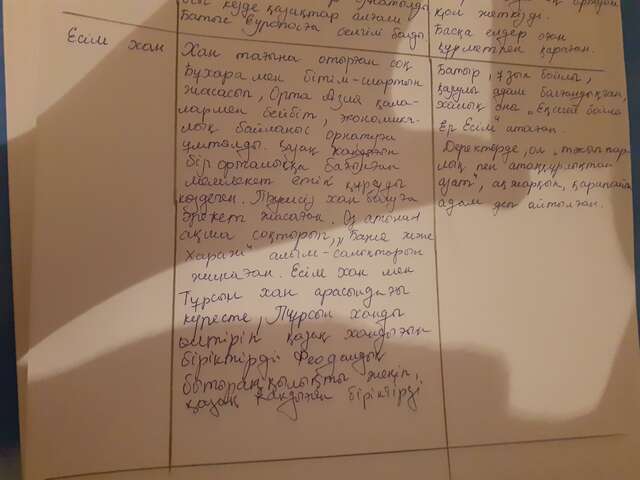 кезде қазақтар алғаш
Батыс Еуропаға белгілі болды.
қол жеткізді.
Басқа елдер оған
құрметпен қараған.
Есім хан
Хан тағына отырған соң
Бұхара мен бітім-шартын
жасасып, Орта Азия қала-
лармен бейбіт, экономика-
лық байланыс орнатуға
ұмтылды. Қазақ хандығын
бір орталыққа бағынған
мемлекет етіп құруды
көздеген. Тұрсын хан болуға
әрекет жасаған. Өз атынан
ақша соқтырып, „Баж және
Харадж" алым-салықтарын
жинаған. Есім хан мен
Тұрсын хан арасындағы
күресте, Тұрсын ханды
өлтіріп қазақ хандығын
біріктірді. Феодалдық
бытыраңқылықты жеңіп,
қазақ хандығын біріктірді
Батыр, ұзын бойлы,
қарулы адам болғандықтан,
халық оны „Еңсегей бойлы
Ер Есім" атаған.
Деректерде, ол „тәкаппар-
лық пен атаққұмарлықтан
ада", ақжарқын, қарапайым
адам деп айтылған.